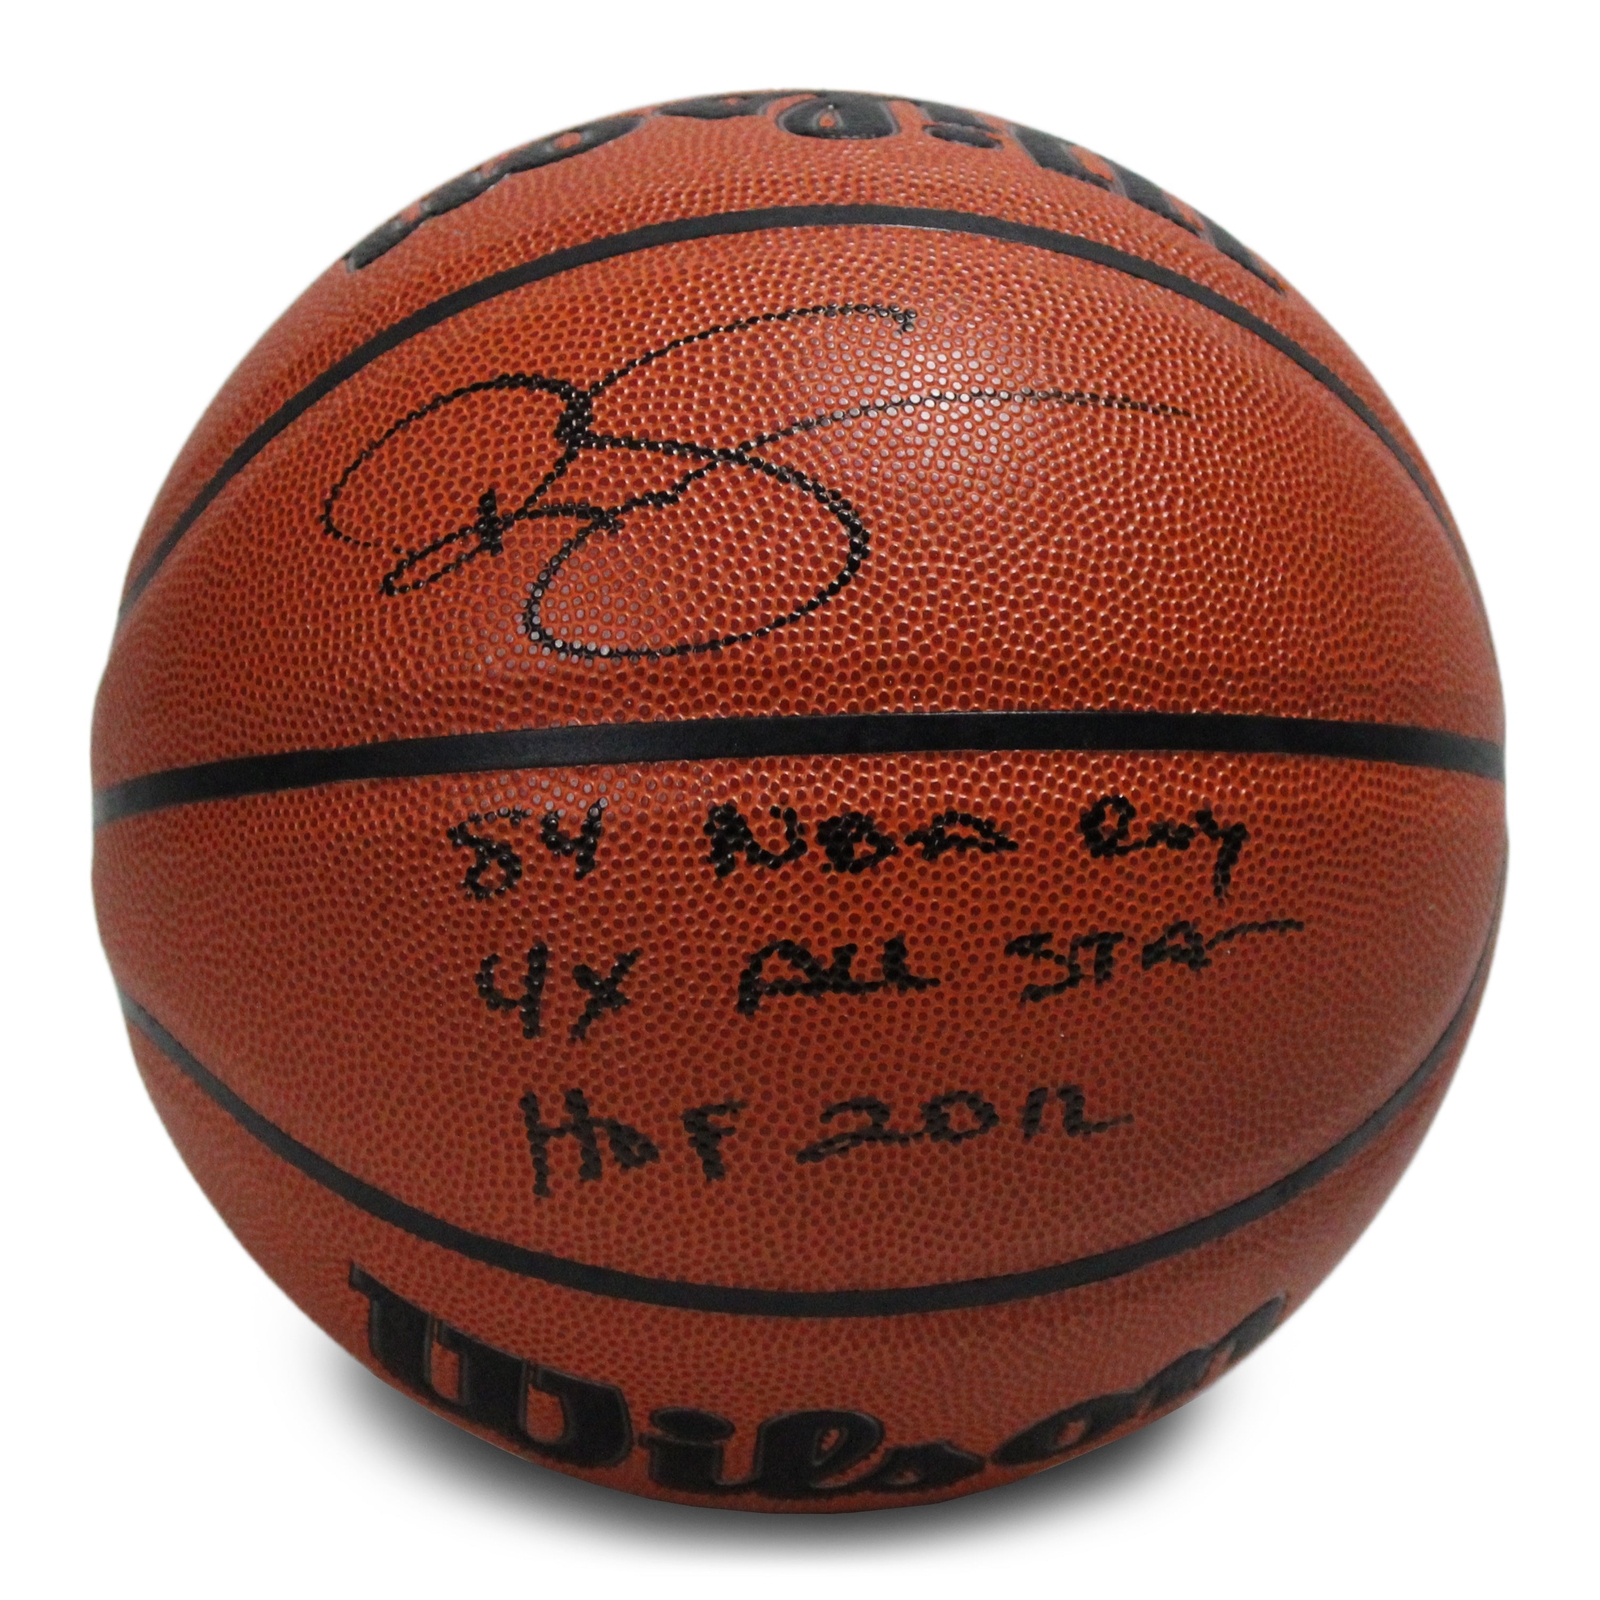 Wilson
84 NBA Roy
4x All Star
HOF 2012
Wilson